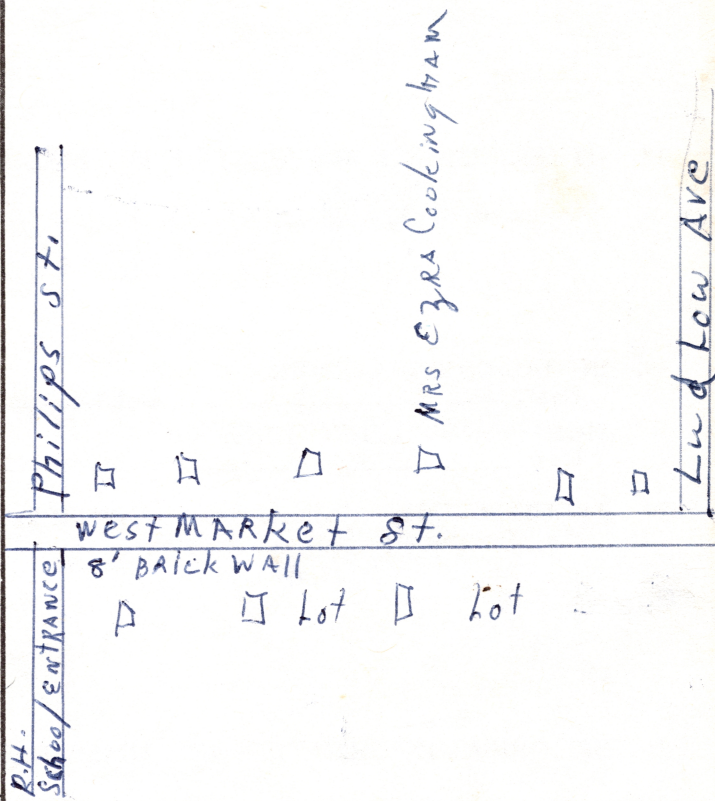 Philips St.
MRS EZRA Cookingham
Ludlow Ave
West MARket St.
8' BRick WAll
Lot
Lot
R.H.
School ENTRANCE